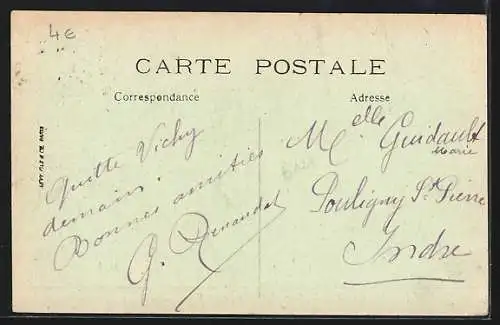 4€
CARTE POSTALE
Correspondance
Adresse
Quitte Vichy
demain.
Bonnes amitiés
G. Renaudat
Melle Guidault
Marie
Pouligny St Pierre
Indre